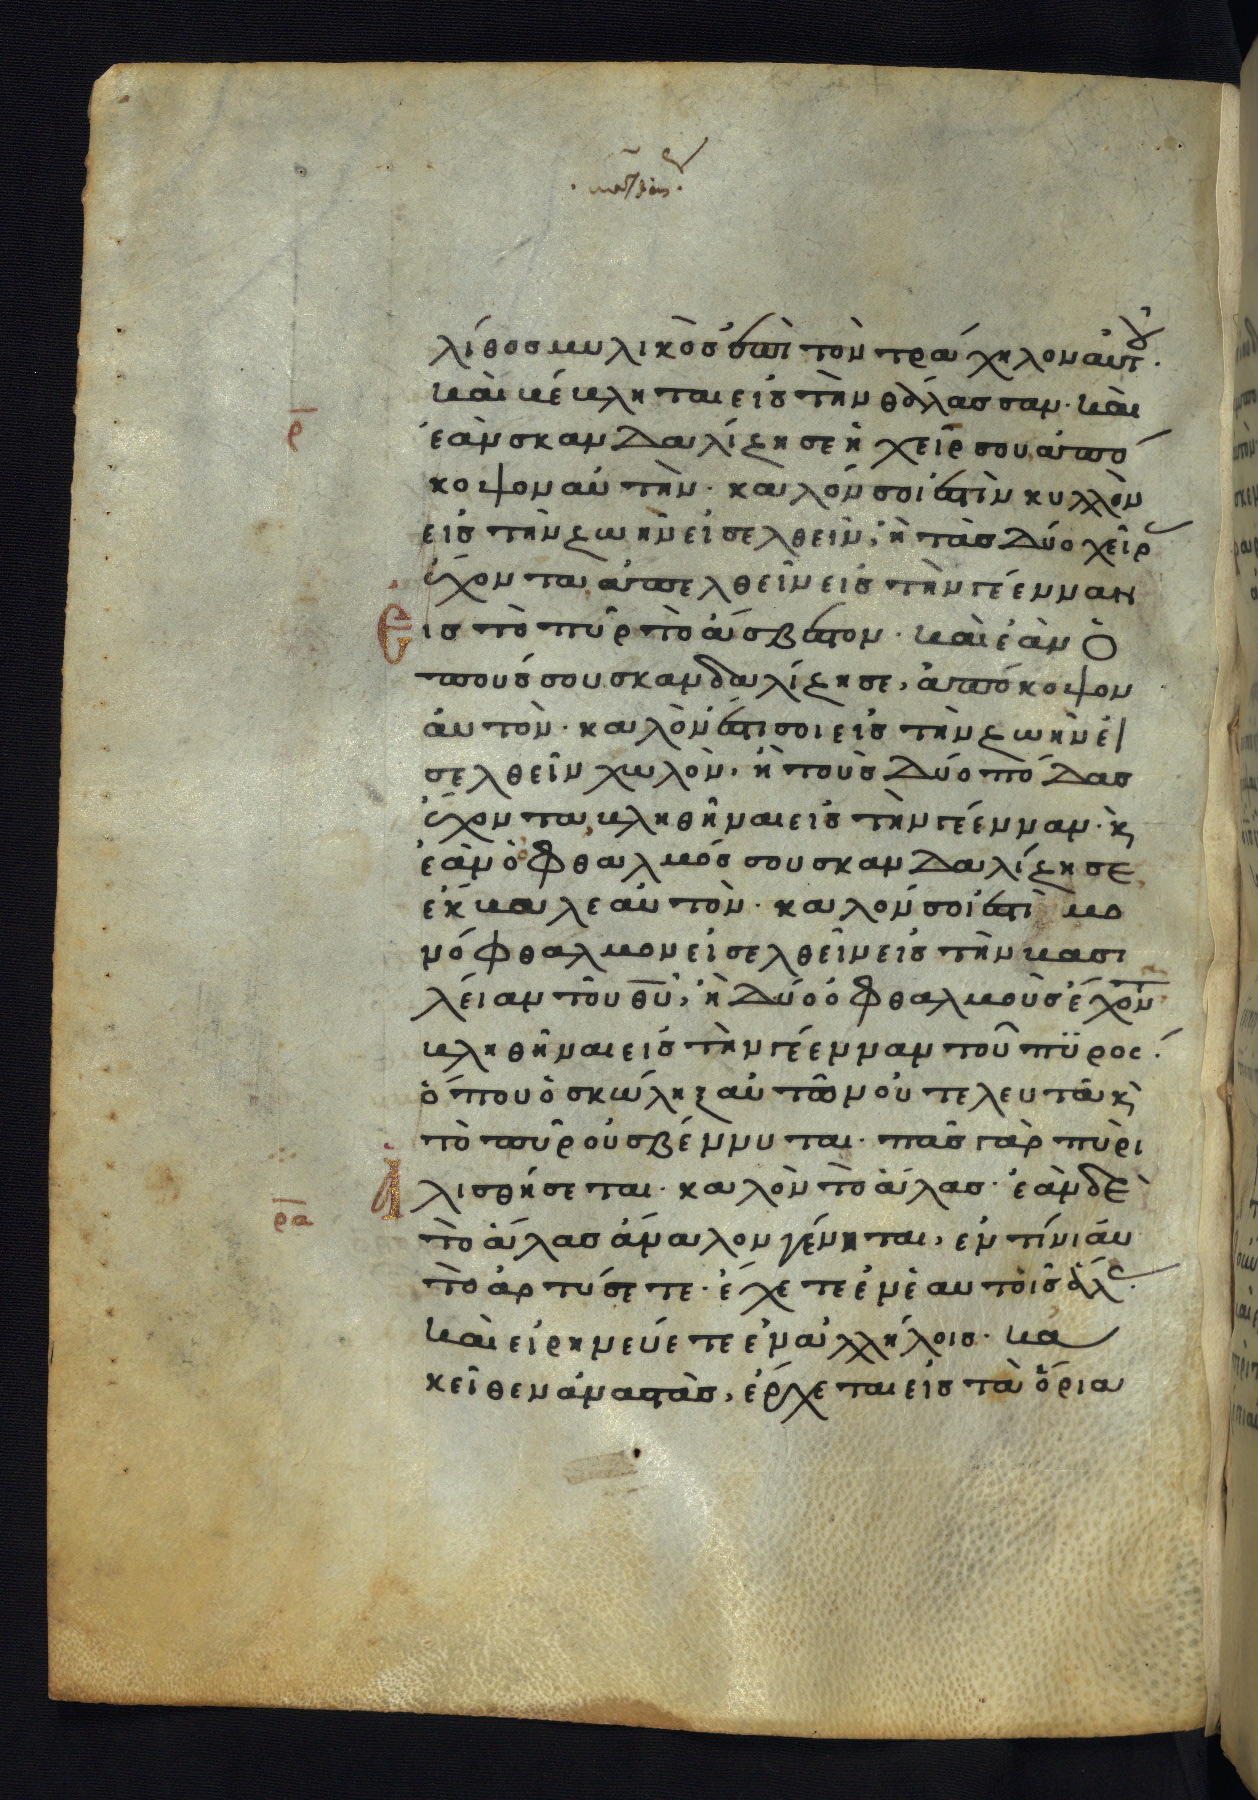 λίθος μυλικὸς ἐπὶ τὸν τράχηλον αὐτοῦ.
καὶ βέβληται εἰς τὴν θάλασσαν· καὶ
ρ
ἐὰν σκανδαλίζη σε ἡ χεῖρ σου ἀπό
κοψον αὐτὴν· καλόν σοί ἐστὶν κυλλὸν
εἰς τὴν ζωὴν εἰσελθεῖν, ἢ τὰς δύο χεῖρας
ἔχοντα ἀπελθεῖν εἰς τὴν γέενναν
Εἰς τὸ πῦρ τὸ ἄσβεστον· καὶ ἐὰν ὁ
πούς σου σκανδαλίζη σε, ἀπόκοψον
αὐτὸν· καλὸν ἐστι σοι εἰς τὴν ζωὴν εἰ
σελθεῖν χωλὸν, ἢ τοὺς δύο πόδας
ἔχοντα βληθῆναι εἰς τὴν γέενναν· κ
ἐὰν ὁ ὀφθαλμός σου σκανδαλίζη σε
ἔκβαλε αὐτὸν· καλόν σοί ἐστὶ μο
νόφθαλμον εἰσελθεῖν εἰς τὴν βασι
λείαν τοῦ θυ, ἢ δύο ὀφθαλμοὺς ἔχοντα
βληθῆναι εἰς τὴν γέενναν τοῦ πϋρος·
ὅπου ὁ σκώληξ αὐτῶν οὐ τελευτᾶ κ
τὸ πῦρ οὐ σβέννυται· πᾶς γὰρ πυρὶ
Ἁλισθήσεται· καλὸν τὸ ἅλας· ἐὰν δὲ
ρα
τὸ ἅλας ἄναλον γένηται, ἐν τίνι αὐ
τὸ ἀρτύσετε· ἔχετε ἐν ἑαυτοῖς ἅλας·
καὶ εἰρηνεύετε ἐν ἀλλήλοις· κα
κεῖθεν ἀναστὰς, ἔρχεται εἰς τὰ ὅρια